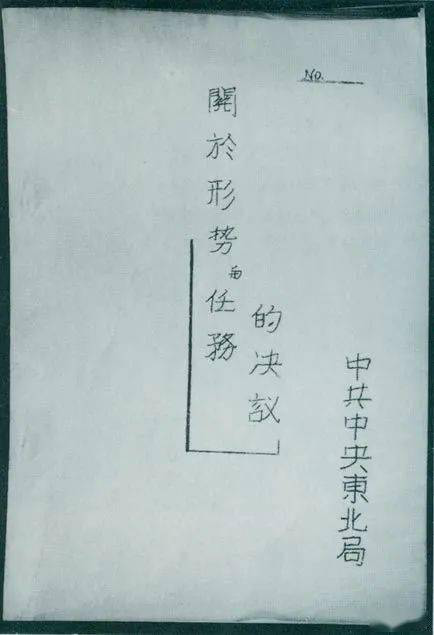 No.
關於形势与任務
的决议
中共中央東北局